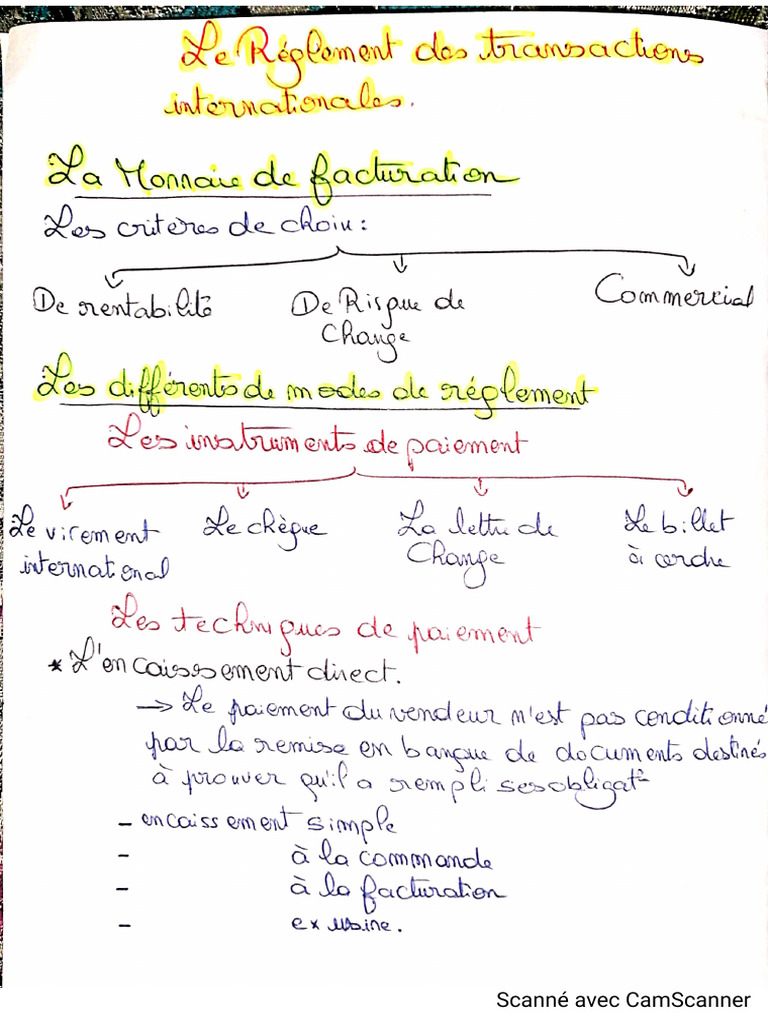 Le Réglement des transactions
internationales.
La Monnaie de facturation
Les critères de choix :
De rentabilité
De Risque de
Change
Commercial
Les différents de modes de réglement
Les instruments de paiement
Le virement
international
Le chèque
La lettre de
Change
Le billet
à ordre
Les techniques de paiement
* L'encaissement direct.
→ Le paiement du vendeur n'est pas conditionné
par la remise en banque de documents destinés
à prouver qu'il a rempli ses obligat°
- encaissement simple
- à la commande
- à la facturation
- ex usine.
Scanné avec CamScanner